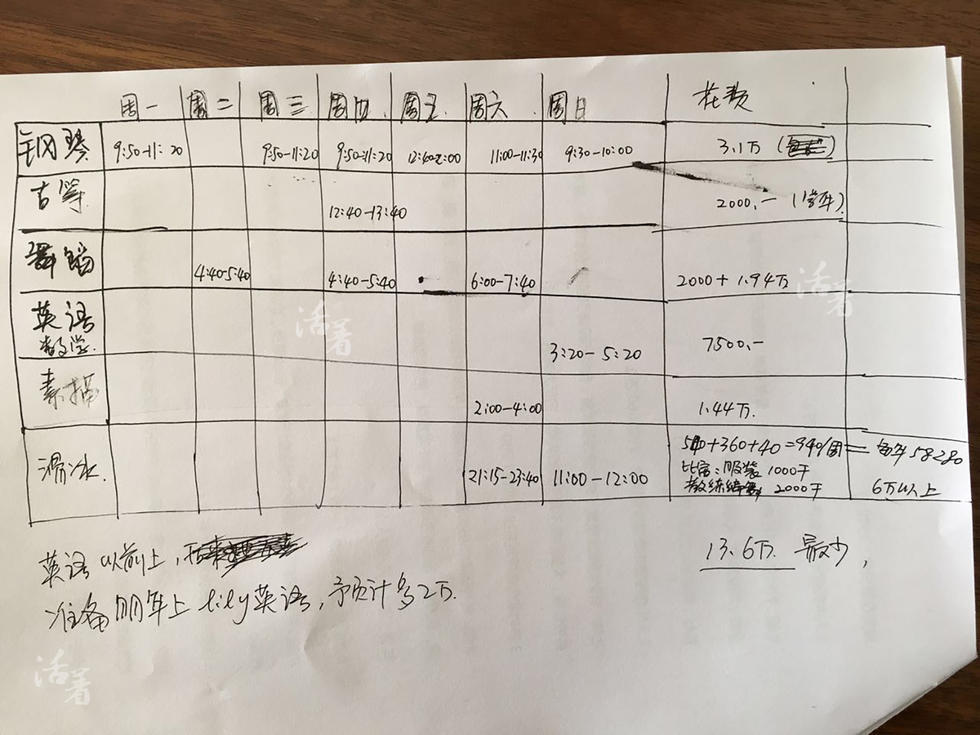 周一 周二 周三 周四 周五 周六 周日 花费
钢琴 9:50-11:20 9:50-11:20 9:50-11:20 12:40-2:00 11:00-11:30 9:30-10:00 3.1万
古筝 12:40-13:40 2000.-
舞蹈 4:40-5:40 4:40-5:40 6:00-7:40 2000+1.94万
英语
数学 3:20-5:20 7500.-
素描 2:00-4:00 1.44万.
滑冰 21:15-23:40 11:00-12:00 540+360+40=940/周= 每年58280
比赛:服装 1000千
教练 2000千 6万以上
英语以前上,
准备明年上lily英语,预计多2万.
13.6万 最少,
活着
活着
活着